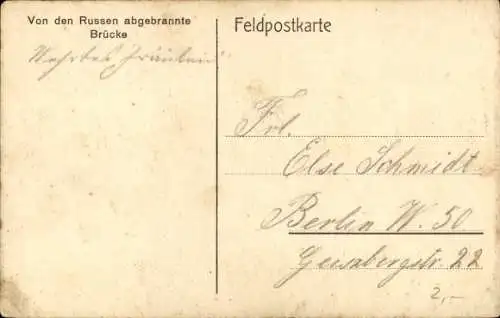 Von den Russen abgebrannte
Brücke
Wehrtes Fräulein
Feldpostkarte
Frl.
Else Schmidt
Berlin W. 50
Geisbergstr. 22
2,-